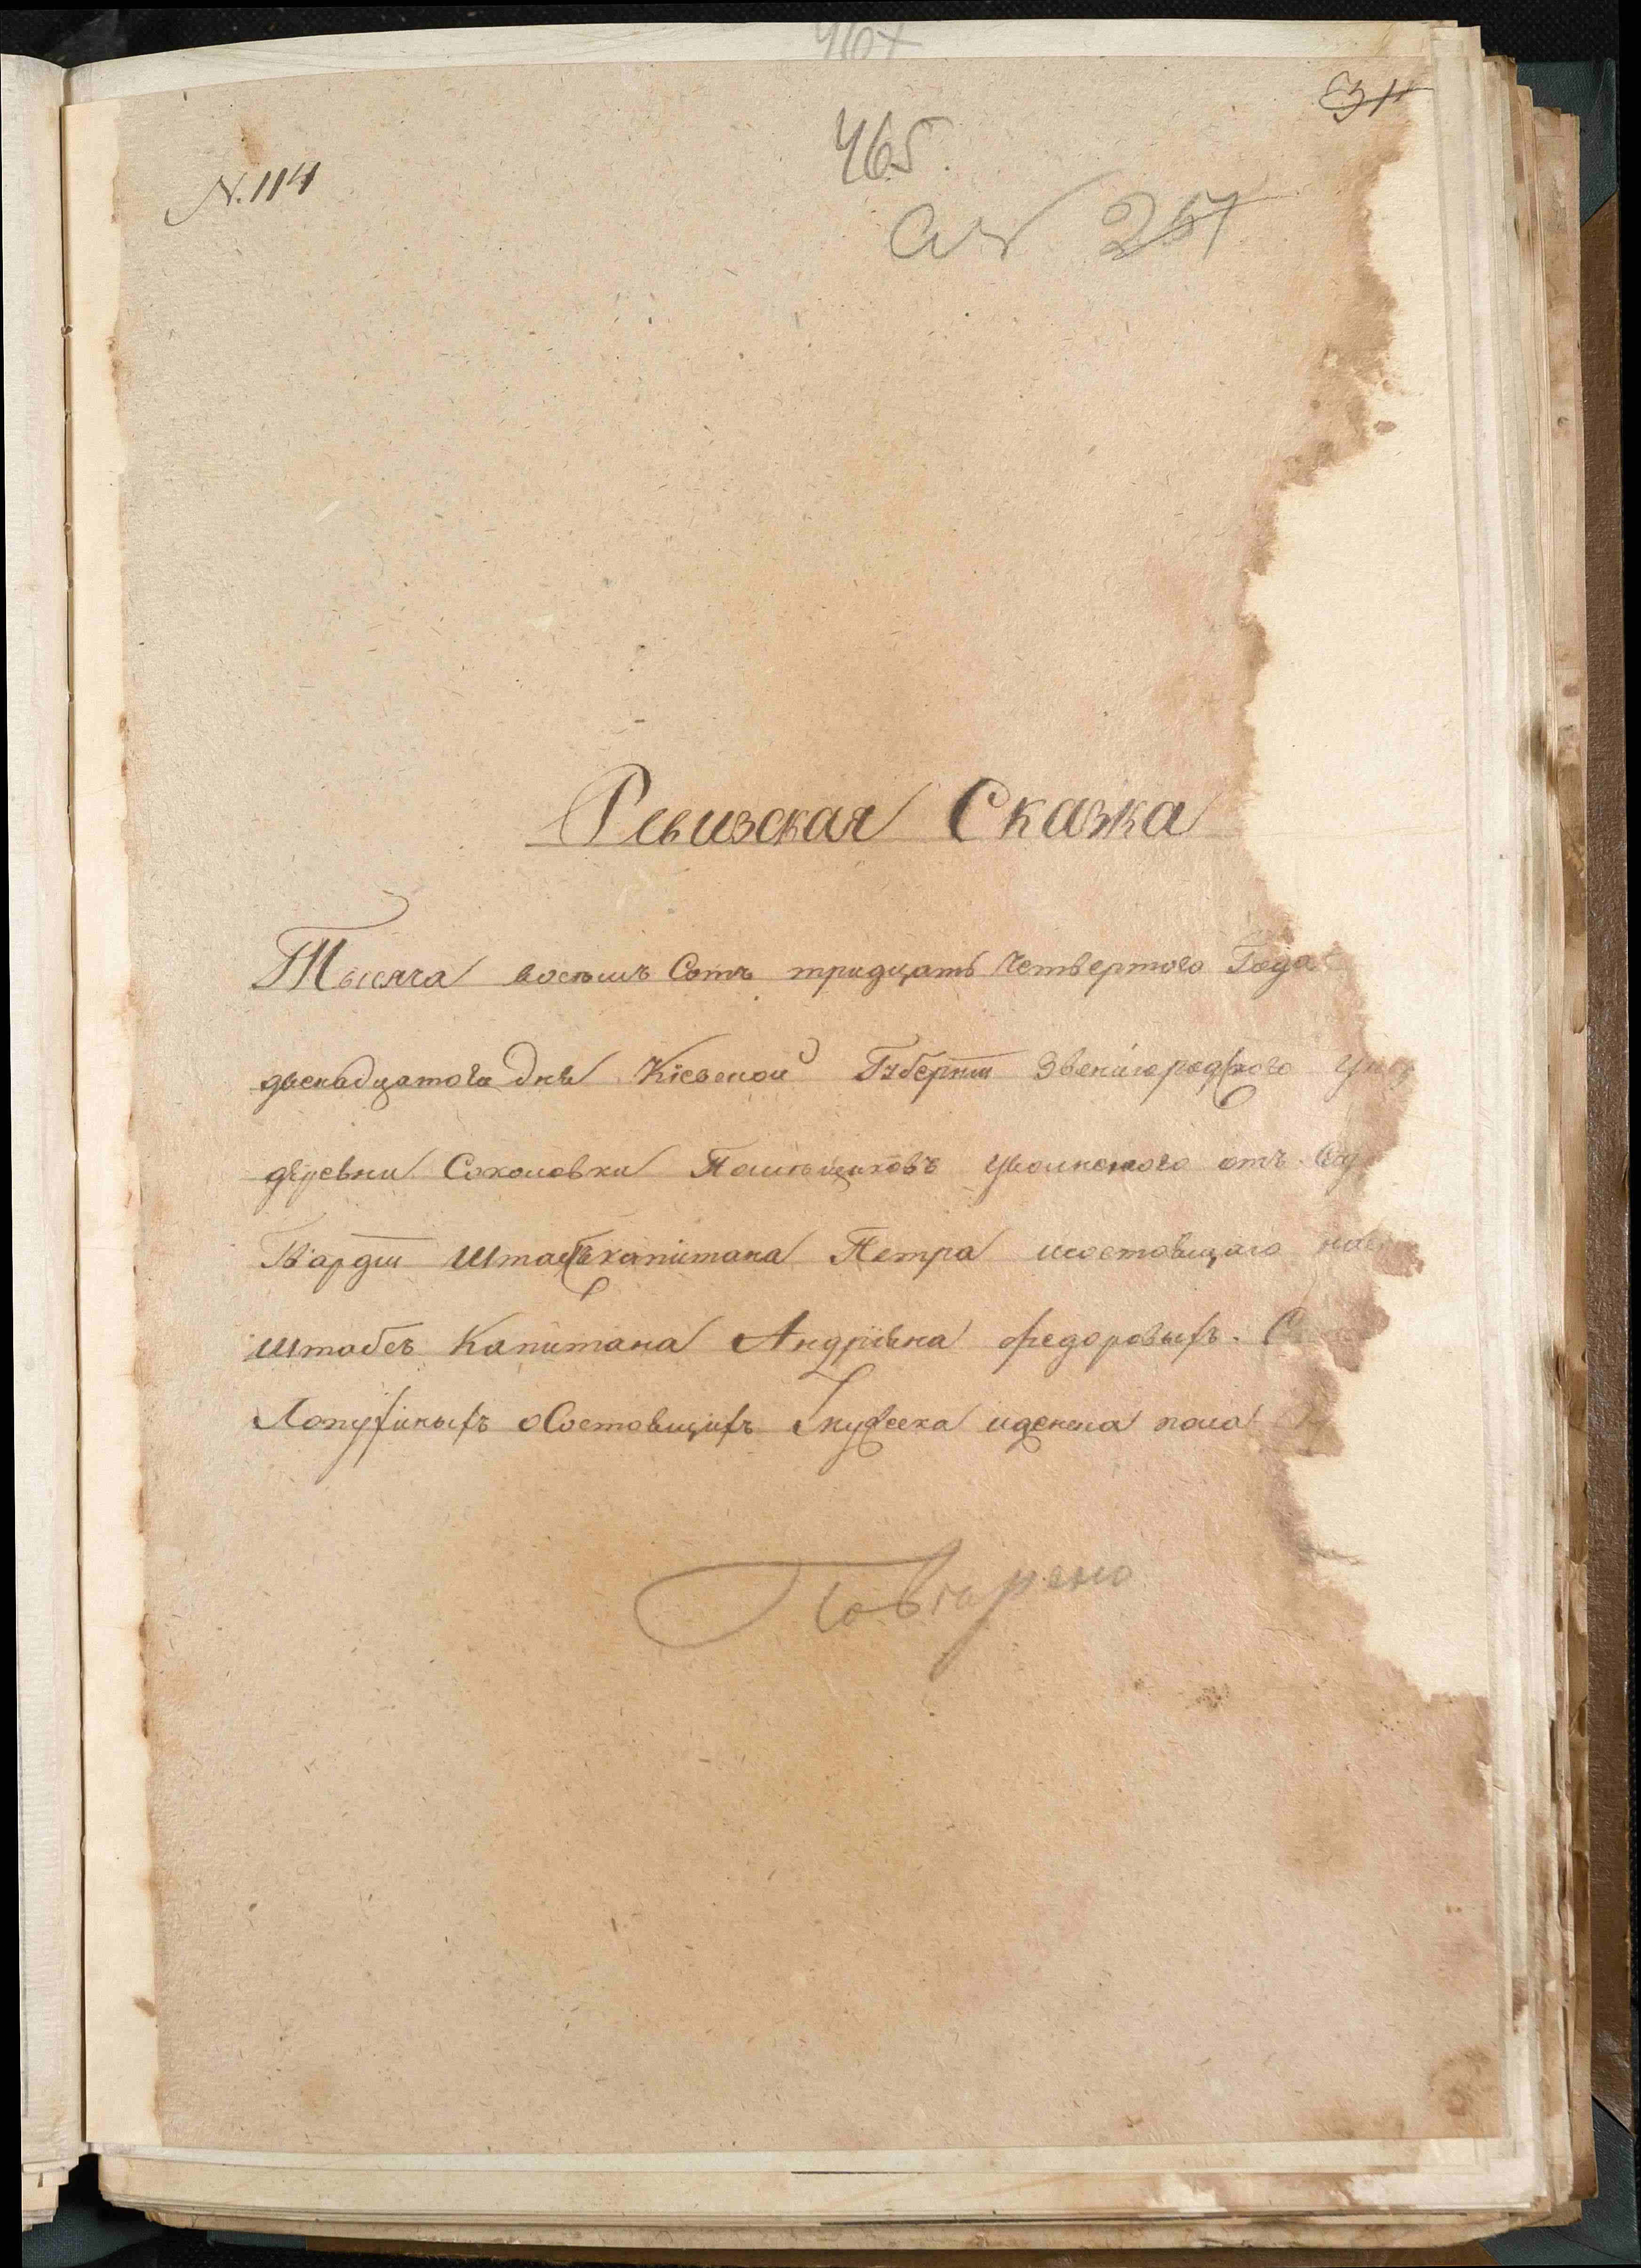 467
31
N. 114
465.
257
Ревизская Сказка
Тысяча восемь Сотъ тридцать Четвертого Года
двенадцатого дня Кіевской Губерніи Звенигородского
деревни Соколовки Помѣщиковъ уволенного отъ
Гвардіи Штабскапитана Петра исостоящаго
штабсъ Капитана Андріяна Федоровыхъ.
Лопухиныхъ оСостоящихъ мужеска иженска пола
Повторено